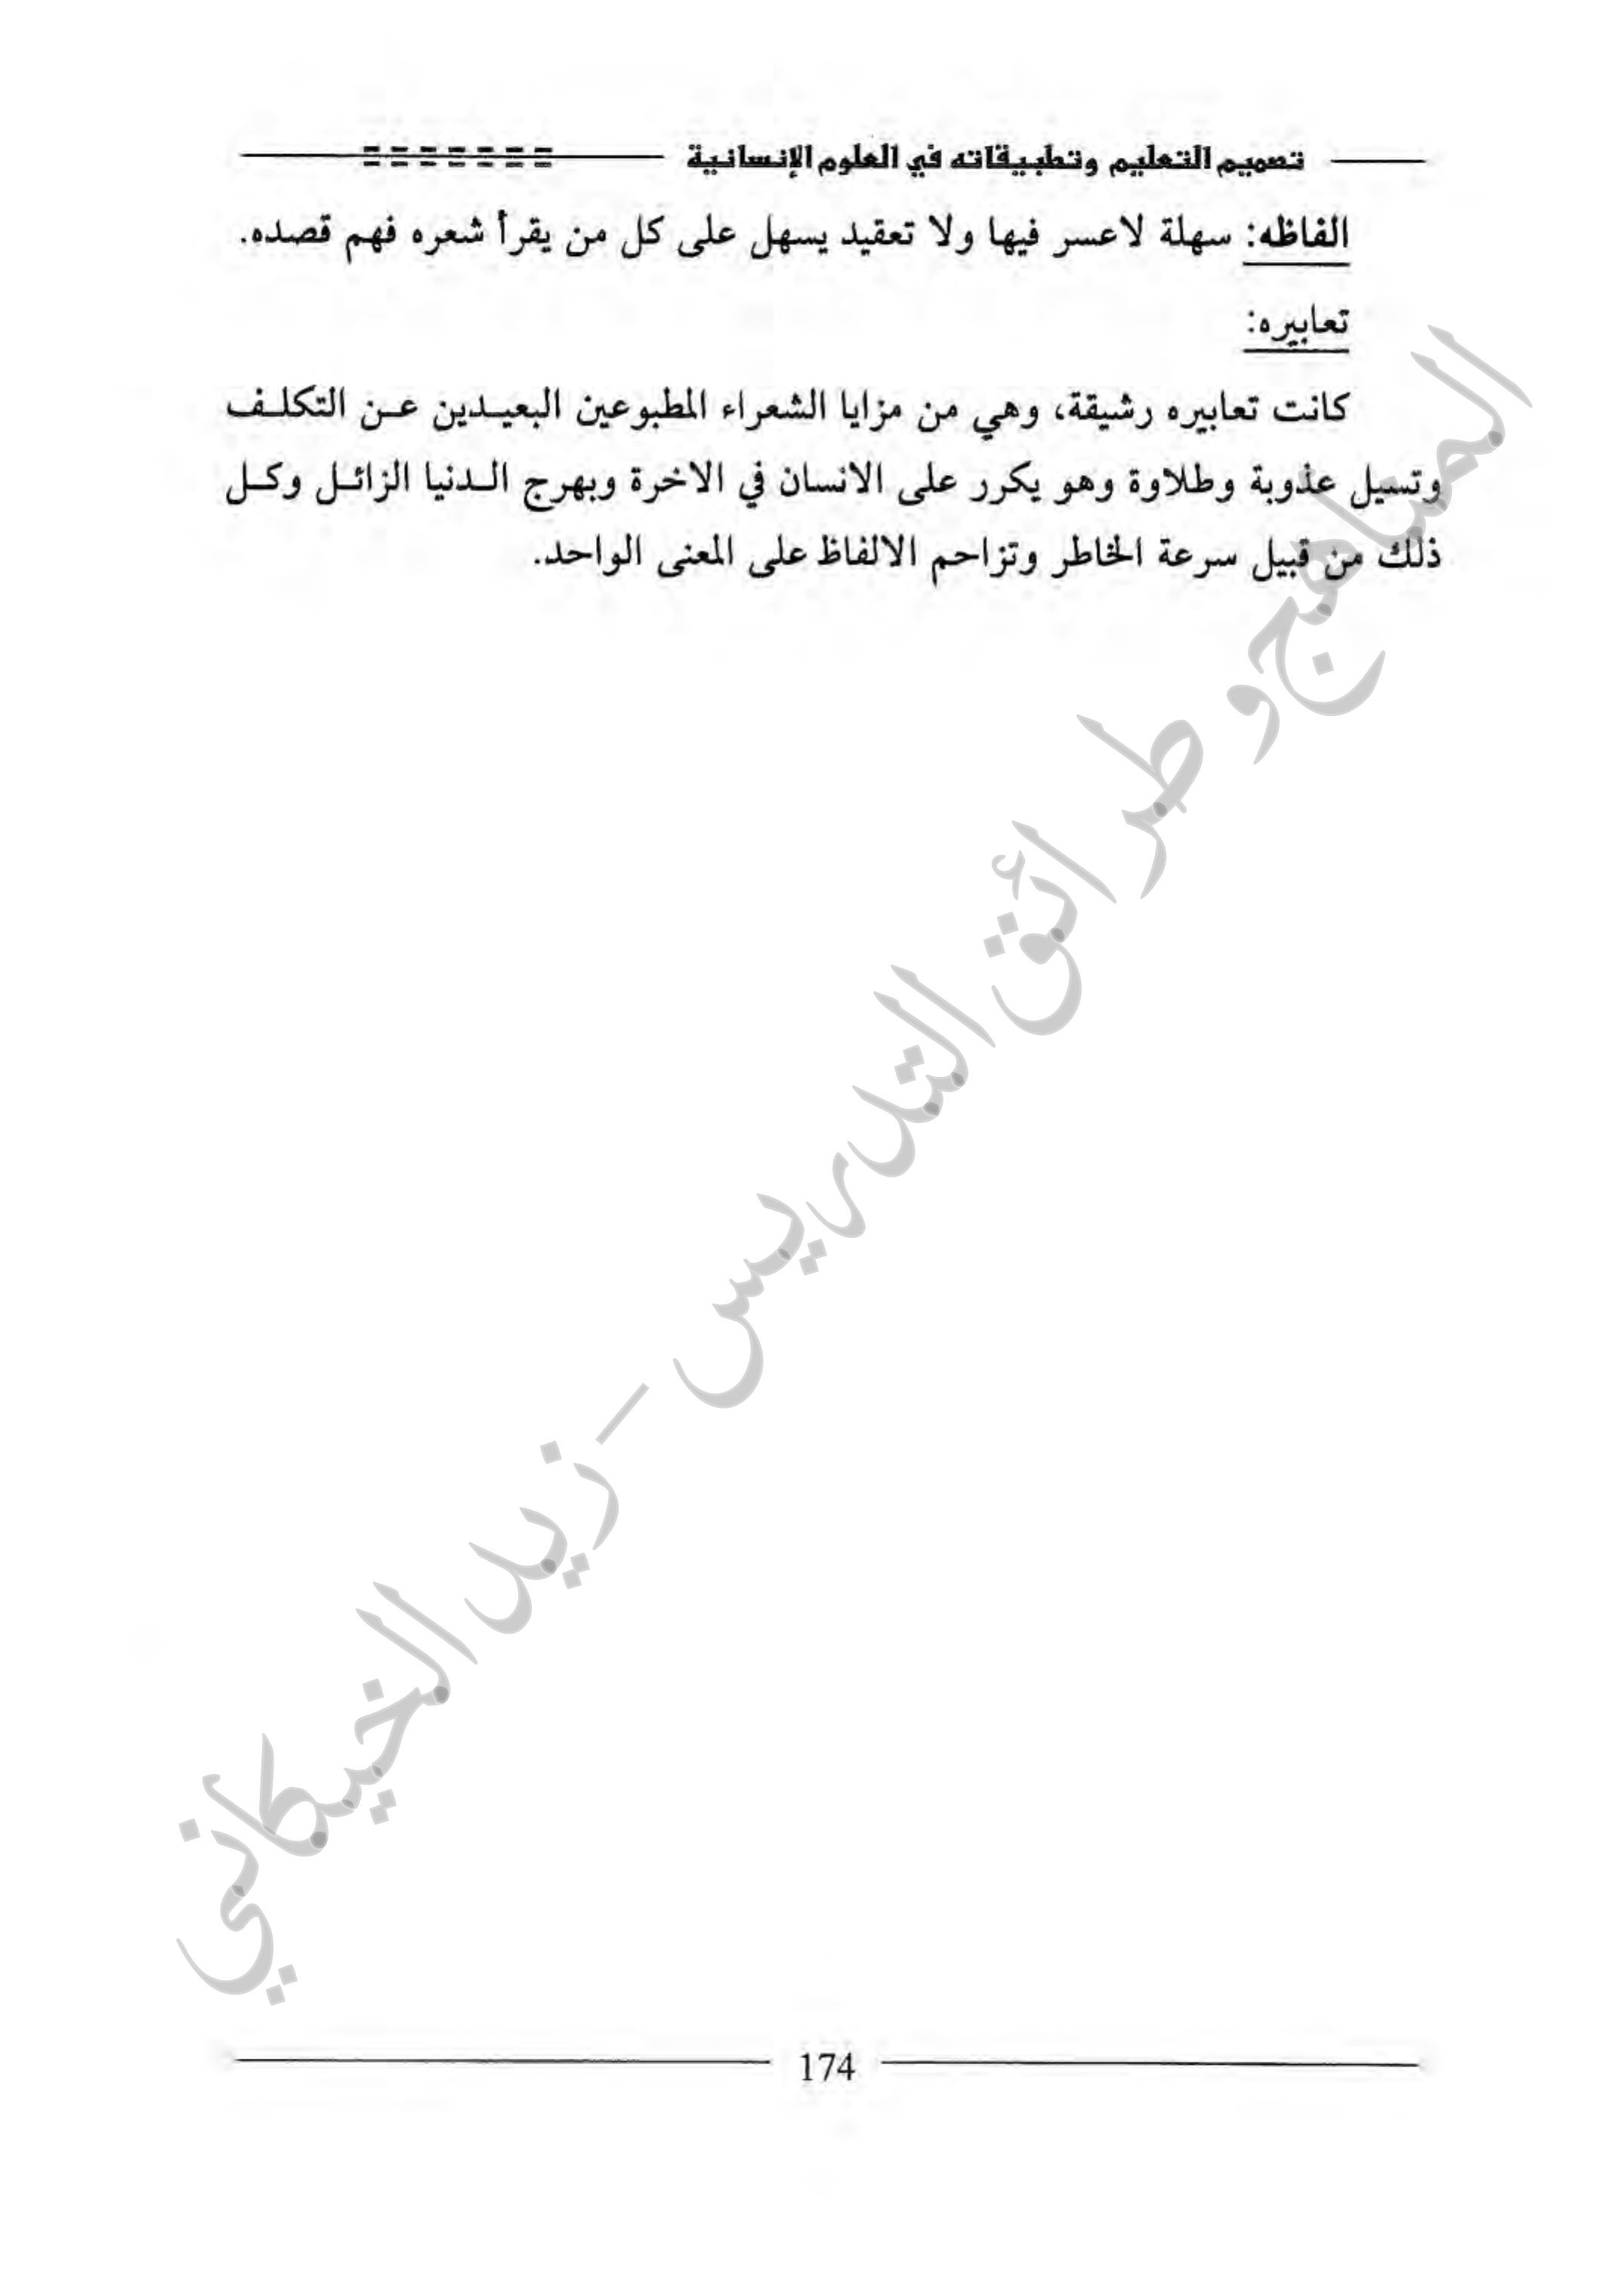 تصميم التعليم وتطبيقاته في العلوم الإنسانية
الفاظه: سهلة لاعسر فيها ولا تعقيد يسهل على كل من يقرأ شعره فهم قصده.
تعابيره:
كانت تعابيره رشيقة، وهي من مزايا الشعراء المطبوعين البعيدين عن التكلف
وتسيل عذوبة وطلاوة وهو يكرر على الانسان في الاخرة وبهرج الدنيا الزائل وكل
ذلك من قبيل سرعة الخاطر وتزاحم الالفاظ على المعنى الواحد.
المناهج وطرائق التدريس - زيد الخيكاني
174